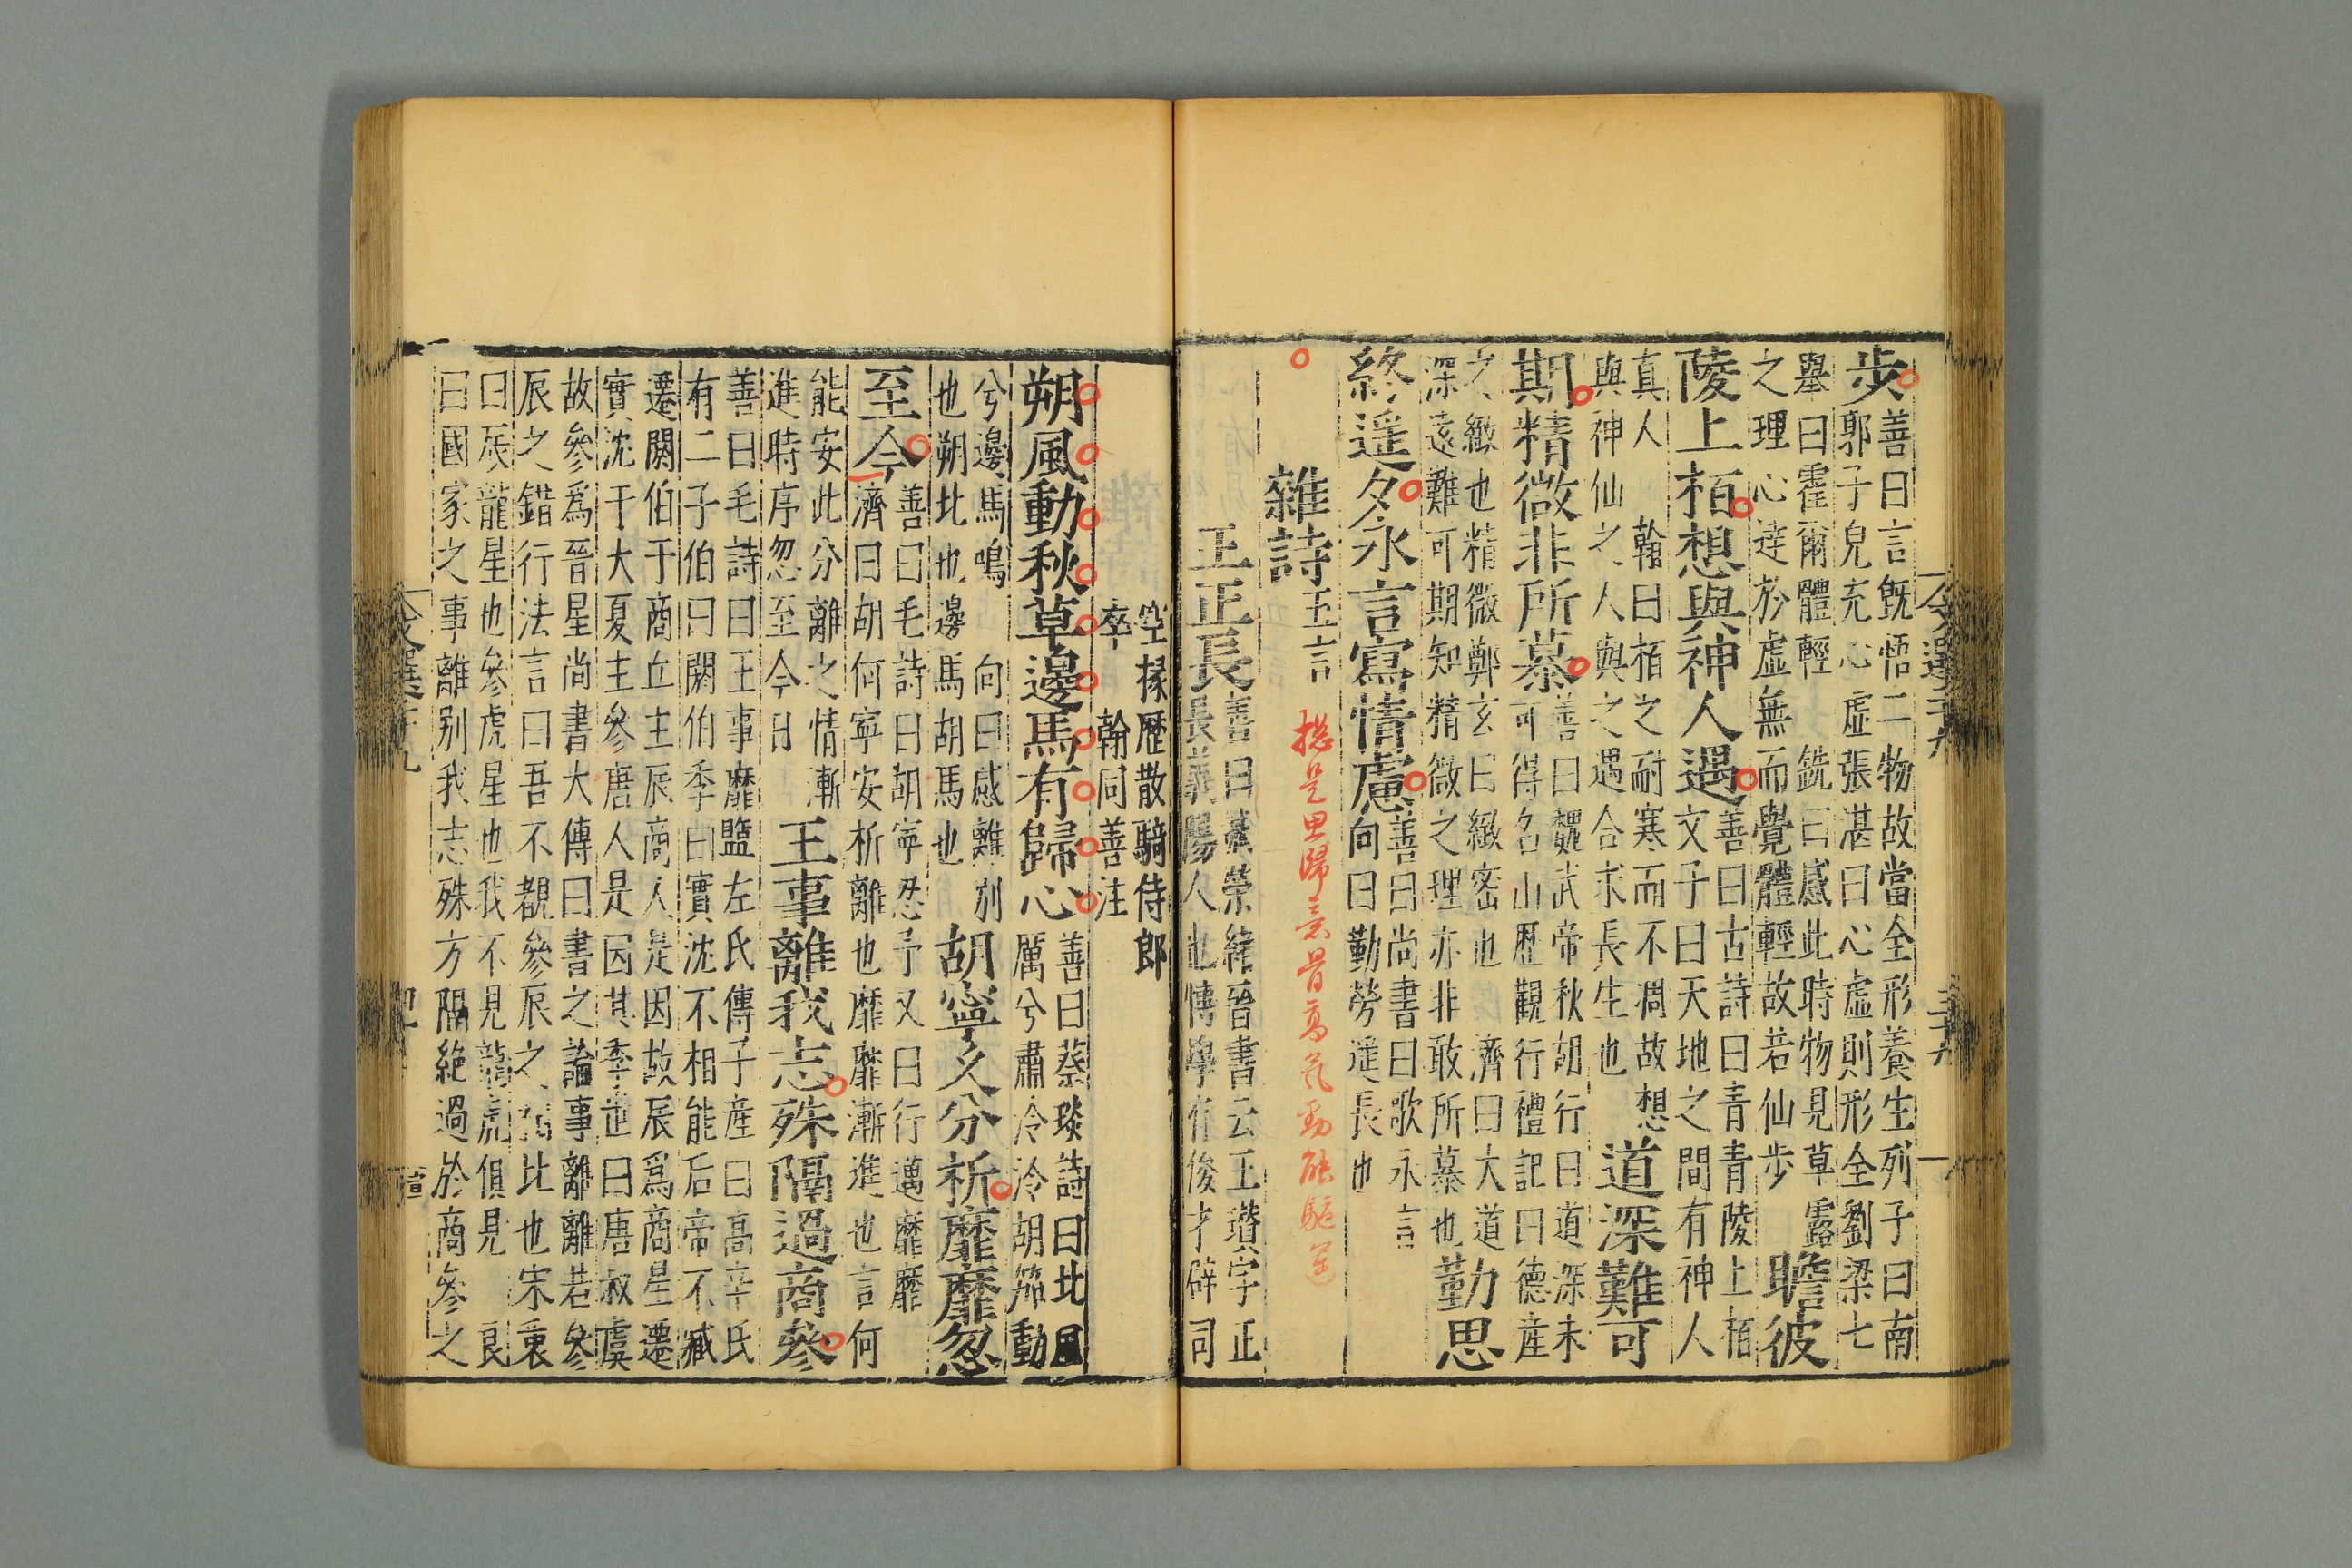 步善曰言旣悟二物故當全形養生列子曰南
郭子皃充心虛張湛曰心虛則形全劉梁七
舉曰霍爾體輕 銑曰感此時物見草露
之理心達於虛無而覺體輕故若仙步
瞻彼
陵上栢想與神人遇善曰古詩曰青青陵上栢
文子曰天地之間有神人
真人 翰曰栢之耐寒而不凋故想
與神仙之人與之遇合求長生也
道深難可
期精微非所慕善曰魏武帝秋胡行曰道深未
可得名山歷觀行禮記曰德產
之緻也精微鄭玄曰緻密也 濟曰大道
深遠難可期知精微之理亦非敢所慕也
勤思
終遥夕永言寫情慮善曰尚書曰歌永言
向曰勤勞遥長也
雜詩王言
捴是思歸意骨高氣動能驅
王正長善曰臧榮緒晉書云王瓚字正
長義陽人也博學有俊才辟司
空掾歷散騎侍郎
卒 翰同善注
朔風動秋草邊馬有歸心善曰蔡琰詩曰北風
厲兮肅冷冷胡笳動
兮邊馬鳴 向曰感離別
也朔北也邊馬胡馬也
胡寧久分析靡靡忽
至今善曰毛詩曰胡寧忍予又曰行邁靡靡
濟曰胡何寧安析離也靡靡漸進也言何
能安此分離之情漸
進時序忽至今日
王事離我志殊隔過商參
善曰毛詩曰王事靡盬左氏傳子產曰高辛氏
有二子伯曰閼伯季曰實沈不相能后帝不臧
遷閼伯于商丘主辰商人是因故辰爲商星遷
實沈于大夏主參唐人是因其季世曰唐叔虞
故參爲晉星尚書大傳曰書之論事離離若參
辰之錯行法言曰吾不覩參辰之相比也宋衷
曰辰龍星也參虎星也我不見龍虎俱見 良
曰國家之事離別我志殊方隔絶過於商參之